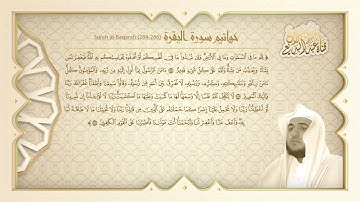 خواتيم سورة البقرة Surah al-Baqarah (284-286)
لله ما في السماوات وما في الأرض وإن تبدوا ما في أنفسكم أو تخفوه يحاسبكم به الله فيغفر لمن
يشاء ويعذب من يشاء والله على كل شيء قدير ءامن الرسول بما أنزل إليه من ربه والمؤمنون كل
ءامن بالله وملائكته وكتبه ورسله لا نفرق بين أحد من رسله وقالوا سمعنا وأطعنا غفرانك
ربنا وإليك المصير لا يكلف الله نفسا إلا وسعها لها ما كسبت وعليها ما اكتسبت ربنا لا تؤاخذنا إن نسينا
أو أخطأنا ربنا ولا تحمل علينا إصرا كما حملته على الذين من قبلنا ربنا ولا تحملنا ما لا طاقة لنا
به واعف عنا واغفر لنا وارحمنا أنت مولانا فانصرنا على القوم الكافرين